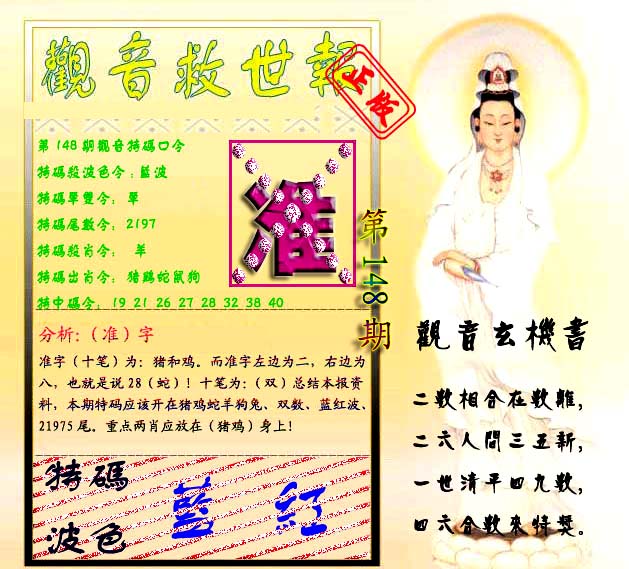 觀音救世報
正版
第148期觀音特碼口令
特碼殺波色令:藍波
特碼單雙令: 單
特碼尾數令: 2197
特碼殺肖令: 羊
特碼出肖令: 猪鷄蛇鼠狗
特中碼令: 19 21 26 27 28 32 38 40
准
第148期
分析:（准）字
准字（十笔）为：猪和鸡。而准字左边为二，右边为
八，也就是说28（蛇）！十笔为:（双）总结本报资
料，本期特码应该开在猪鸡蛇羊狗兔、双数、蓝红波、
21975尾。重点两肖应放在（猪鸡）身上！
特碼
波色
藍 紅
觀音玄機書
二數相合在數難,
二六人間三五新,
一世清平四九數,
四六合數來特獎。